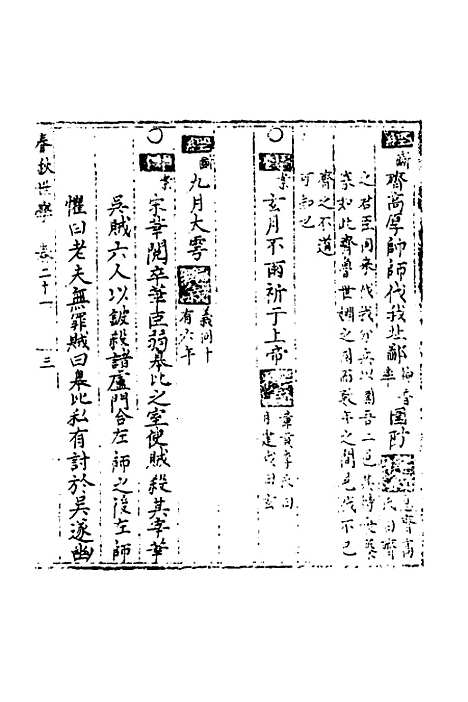 經 齊高厚師師伐我北鄙 圍防
之君臣同來伐我分兵以圍吾二邑其恃
如此齊魯世姻之國而數年之間見伐不已
齊之不道
可知已
玄月不雨祈于上帝
月建戌曰玄
經 九月大雩 義同十
有六年
傳 宋華閱卒華臣弱皋比之室使賊殺其宰華
吳賊六人以鈹殺諸盧門合左師之後左師
懼曰老夫無罪賊曰皋比私有討於吳遂幽
春秋世學 卷二十一 三